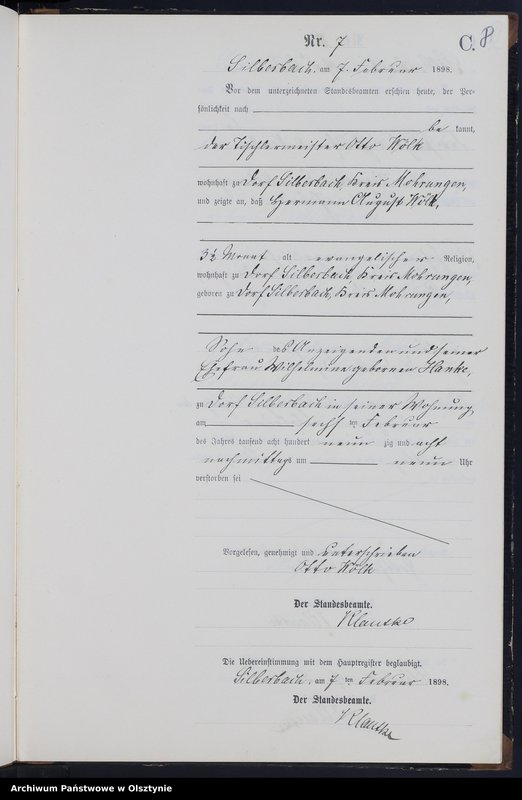 Nr. 7
C. 8
Silberbach, am 7. Februar 1898.
Vor dem unterzeichneten Standesbeamten erschien heute, der Per-
sönlichkeit nach
be kannt,
der Tischlermeister Otto Wölk
wohnhaft zu Dorf Silberbach, Kreis Mohrungen,
und zeigte an, daß Hermann August Wölk,
3½ Monat alt evangelischer Religion,
wohnhaft zu Dorf Silberbach, Kreis Mohrungen,
geboren zu Dorf Silberbach, Kreis Mohrungen,
Sohn des Anzeigenden und seiner
Ehefrau Wilhelmine geborenen Hanke,
zu Dorf Silberbach in seiner Wohnung
am sechs ten Februar
des Jahres tausend acht hundert neun zig und acht
nachmittags um neun Uhr
verstorben sei
Vorgelesen, genehmigt und unterschrieben
Otto Wölk
Der Standesbeamte.
Klautke
Die Uebereinstimmung mit dem Hauptregister beglaubigt.
Silberbach, am 7 ten Februar 1898.
Der Standesbeamte.
Klautke
Archiwum Państwowe w Olsztynie